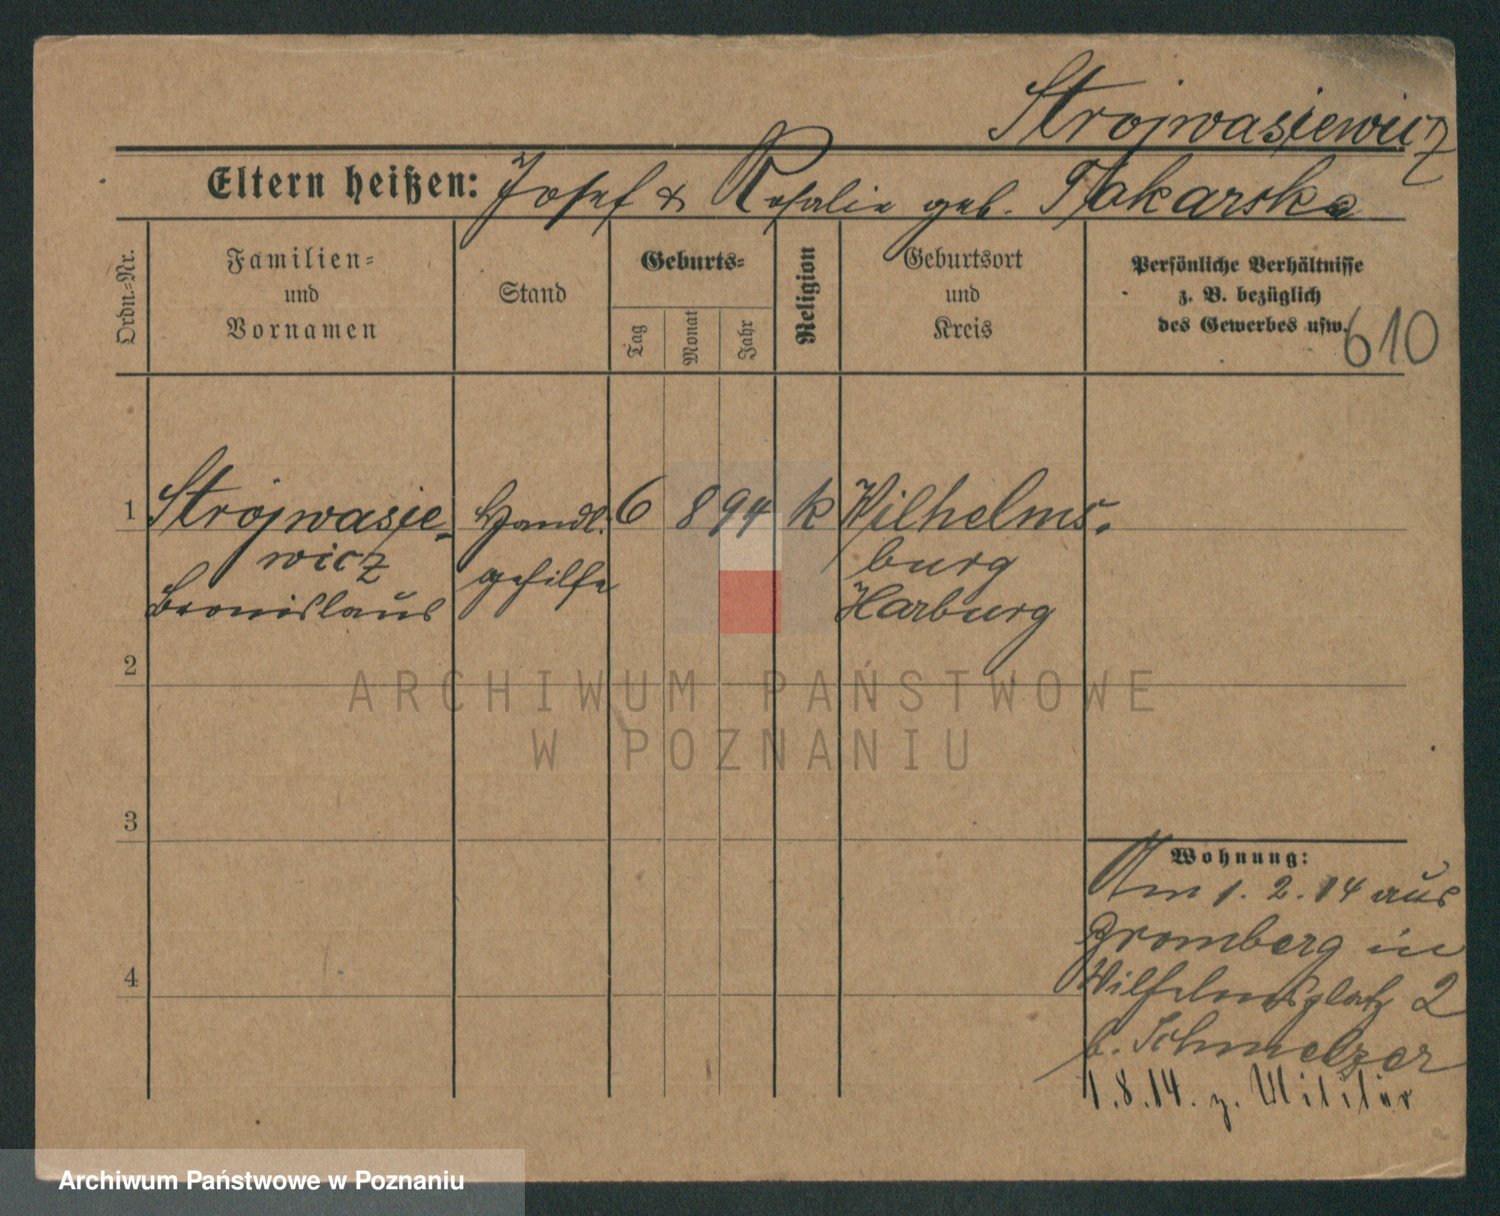 Strojwasiewicz
Eltern heißen: Josef & Rosalie geb. Tokarska
Ordn.-Nr.
Familien-
und
Vornamen
Stand
Geburts-
Tag
Monat
Jahr
Religion
Geburtsort
und
Kreis
Persönliche Verhältnisse
z. B. bezüglich
des Gewerbes usw.
610
1 Strojwasie- Handl. 6 8 94 k Wilhelms-
wicz gehilfe burg
Bronislaus Harburg
2
ARCHIWUM PAŃSTWOWE
W POZNANIU
3
Wohnung:
Am 1. 2. 14 aus
Bromberg in
4
Wilhelmsplatz 2
b. Schmelzer
1.8.14. z. Militär
Archiwum Państwowe w Poznaniu